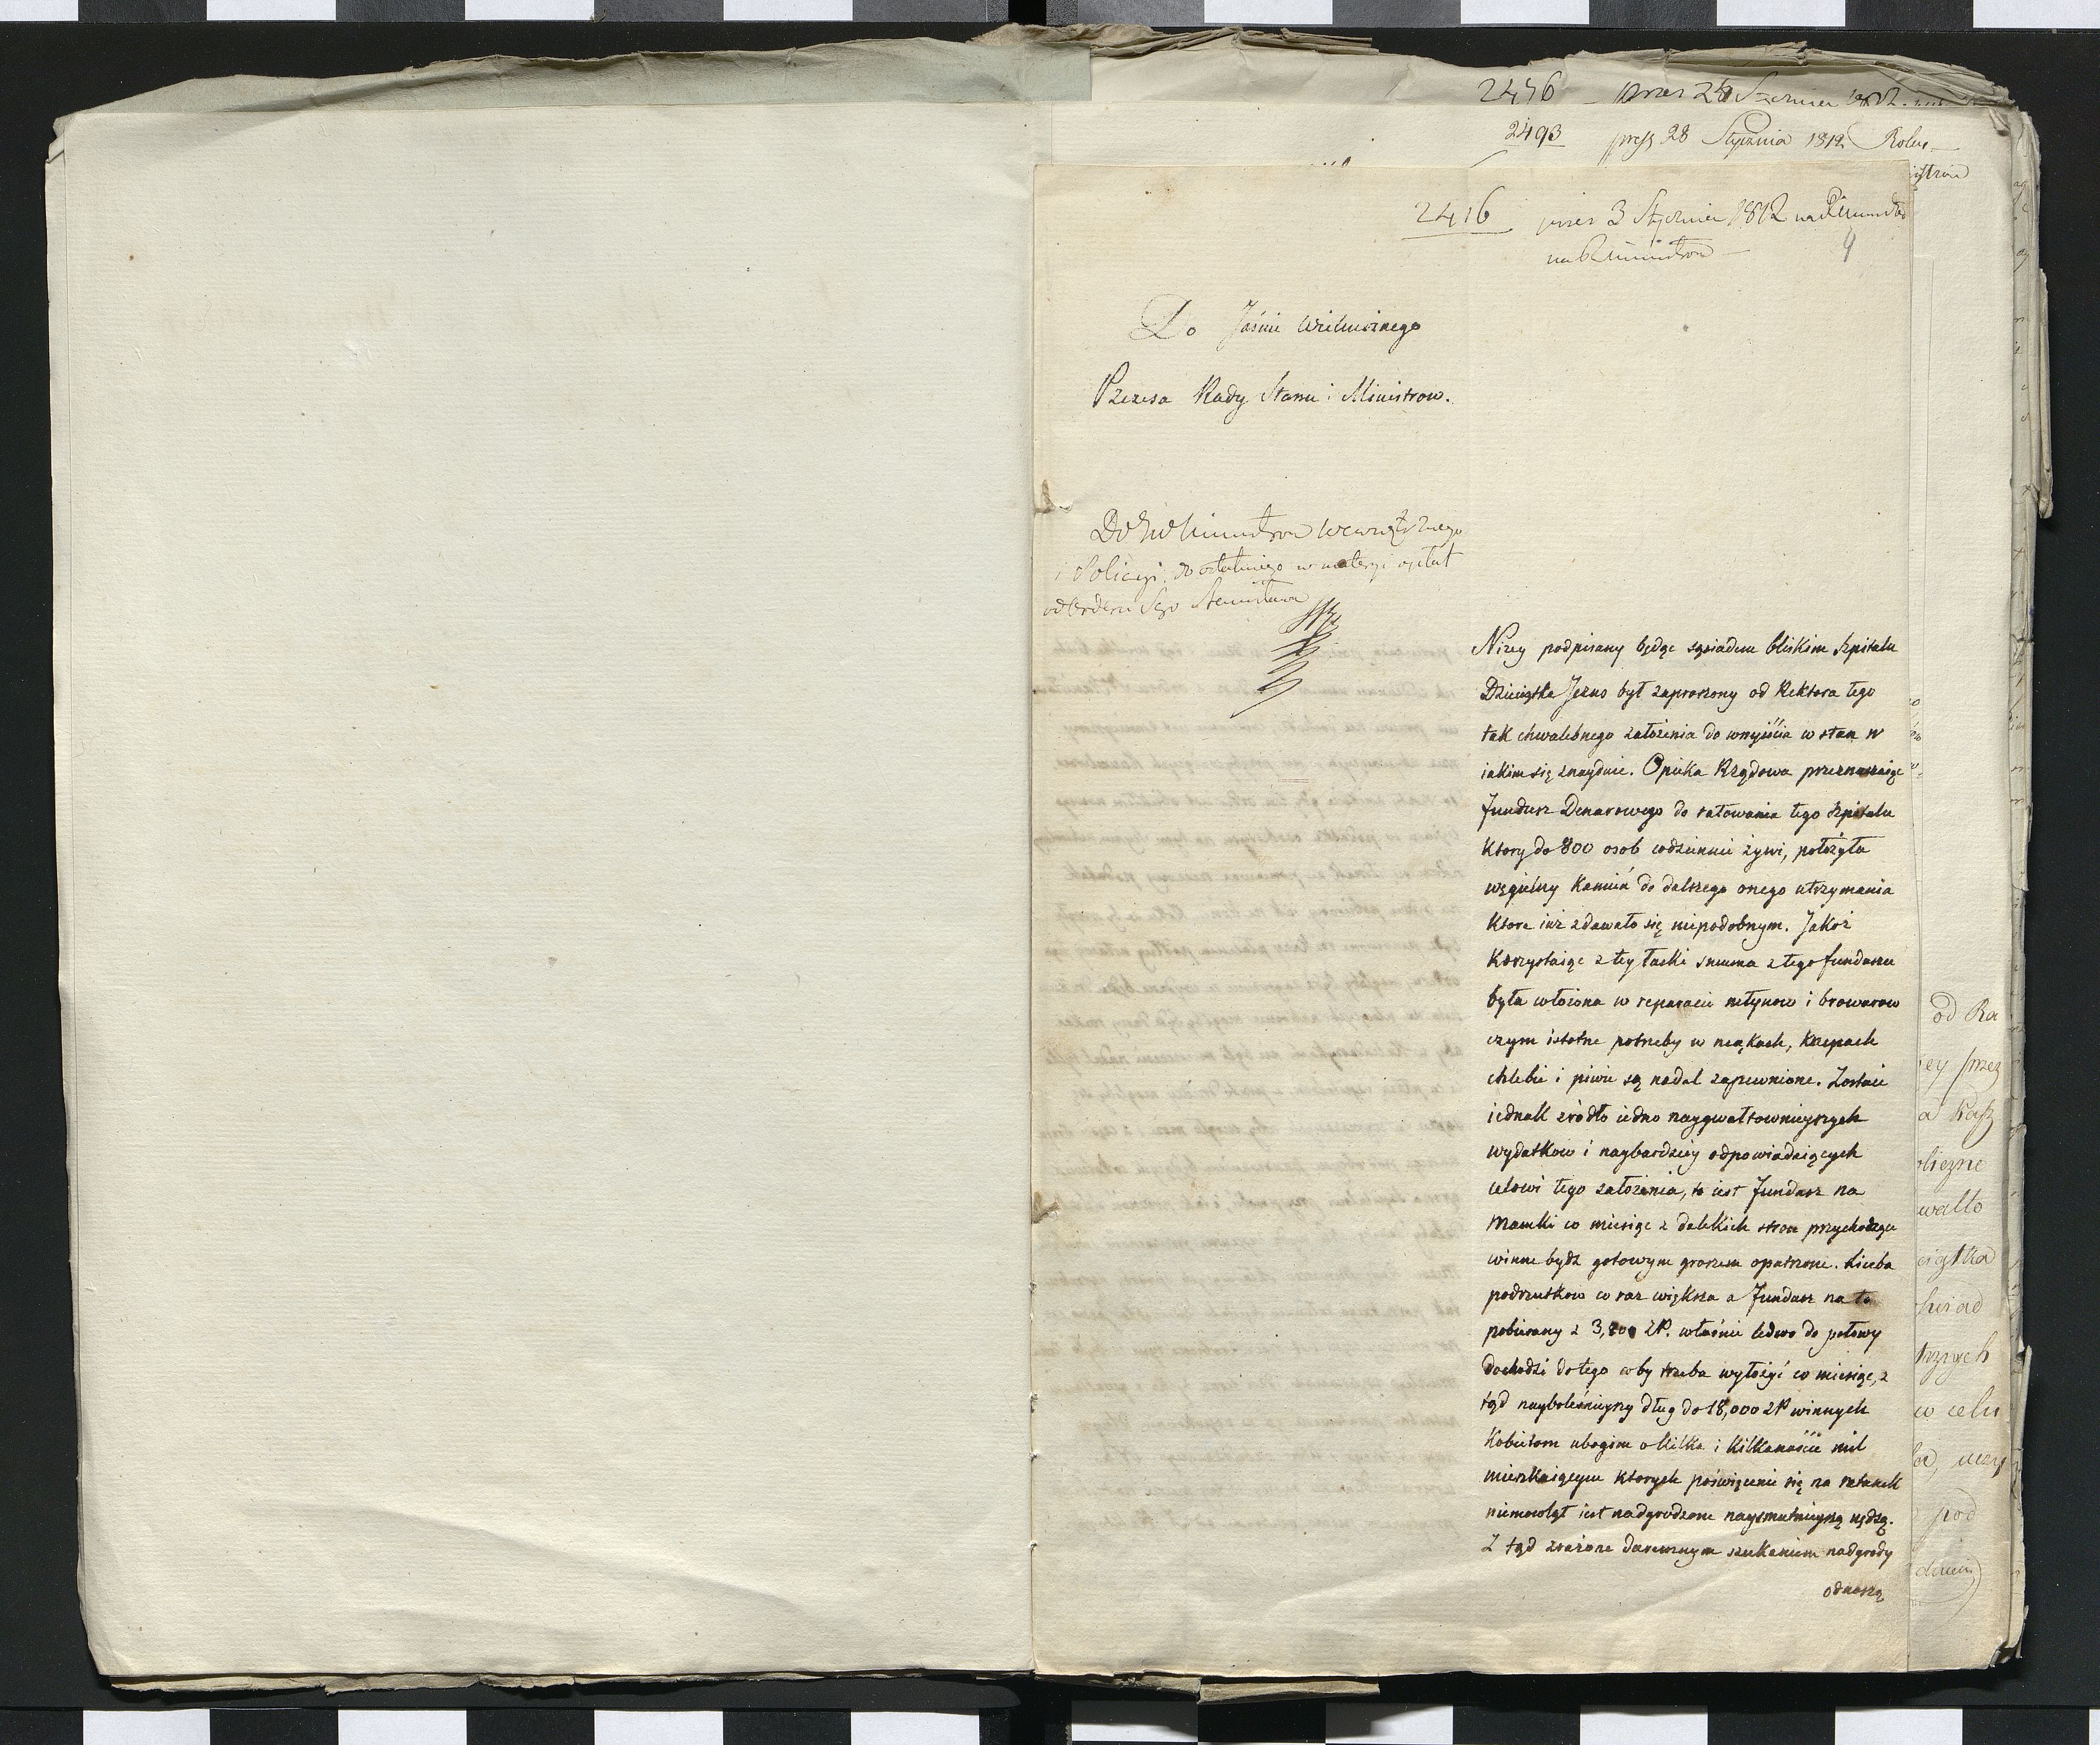 2476 pres 28 Stycznia 1812.
2493 press 28 Stycznia 1812
2416 pres 3 Stycznia 1812
4
Do Jaśnie Wielmożnego
Prezesa Rady Stanu i Ministrow.
i Policyi, do ostatniego w materyi opłat
od Orderu Sgo Stanisława
Niżey podpisany będąc sąsiadem bliskim Szpitalu
Dzieciątka Jezus był zaproszony od Rektora tego
tak chwalebnego założenia do wnyjścia w stan w
iakim się znayduie. Opieka Rządowa przeznaczaiąc
Fundusz Denarowego do ratowania tego Szpitalu
ktory do 800 osob codziennie żywi, położyła
węgielny kamień do dalszego onego utrzymania
ktore iuż zdawało się niepodobnym. Jakoż
korzystaiąc z tey łaski summa z tego funduszu
była włożona w reparacie młynow i browarow
czym istotne potrzeby w mąkach, krupach
chlebie i piwie są nadal zapewnione. Zostaie
iednak zródło iedno naygwałtownieyszych
wydatkow i naybardziey odpowiadaiących
celowi tego założenia, to iest Fundusz na
Mamki co miesiąc z dalekich stron przychodzące
winne bydz gotowym groszem opatrzone. Liczba
podrzutkow co raz większa a Fundusz na to
pobierany z 3,800 ZP. właśnie ledwo do połowy
dochodzi do tego coby trzeba wyłożyć co miesiąc, z
tąd nayboleśnieyszy dług do 18,000 ZP winnych
Kobietom ubogim o kilka i kilkanaście mil
mieszkaiącym ktorych poświęcenie się na ratunek
niemowląt iest nadgrodzone naysmutnieyszą nędzą.
Z tąd zrażone daremnym szukaniem nadgrody
odnoszą
od Ra
ey przez
liczne
walto
ciątka
w celu
pod